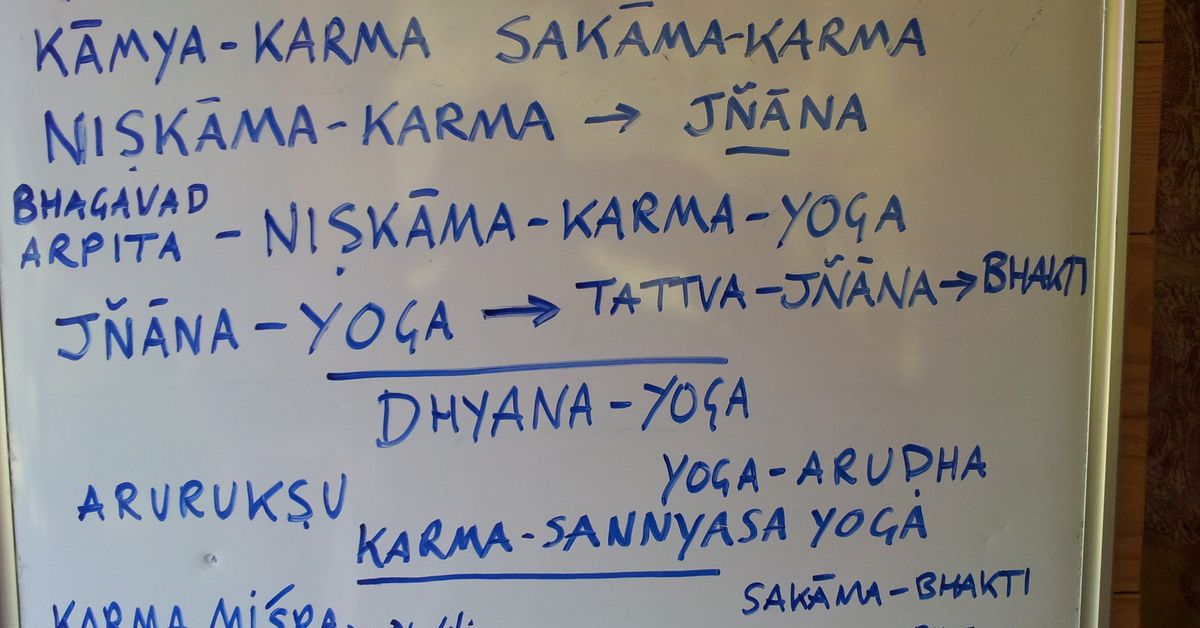 KĀMYA-KARMA SAKĀMA-KARMA
NIṢKĀMA-KARMA → JÑĀNA
BHAGAVAD
ARPITA - NIṢKĀMA-KARMA-YOGA
JÑĀNA-YOGA → TATTVA-JÑĀNA → BHAKTI
DHYANA-YOGA
ARURUKṢU YOGA-ARUḌHA
KARMA-SANNYASA YOGA
SAKĀMA-BHAKTI
KARMA MIŚRA-